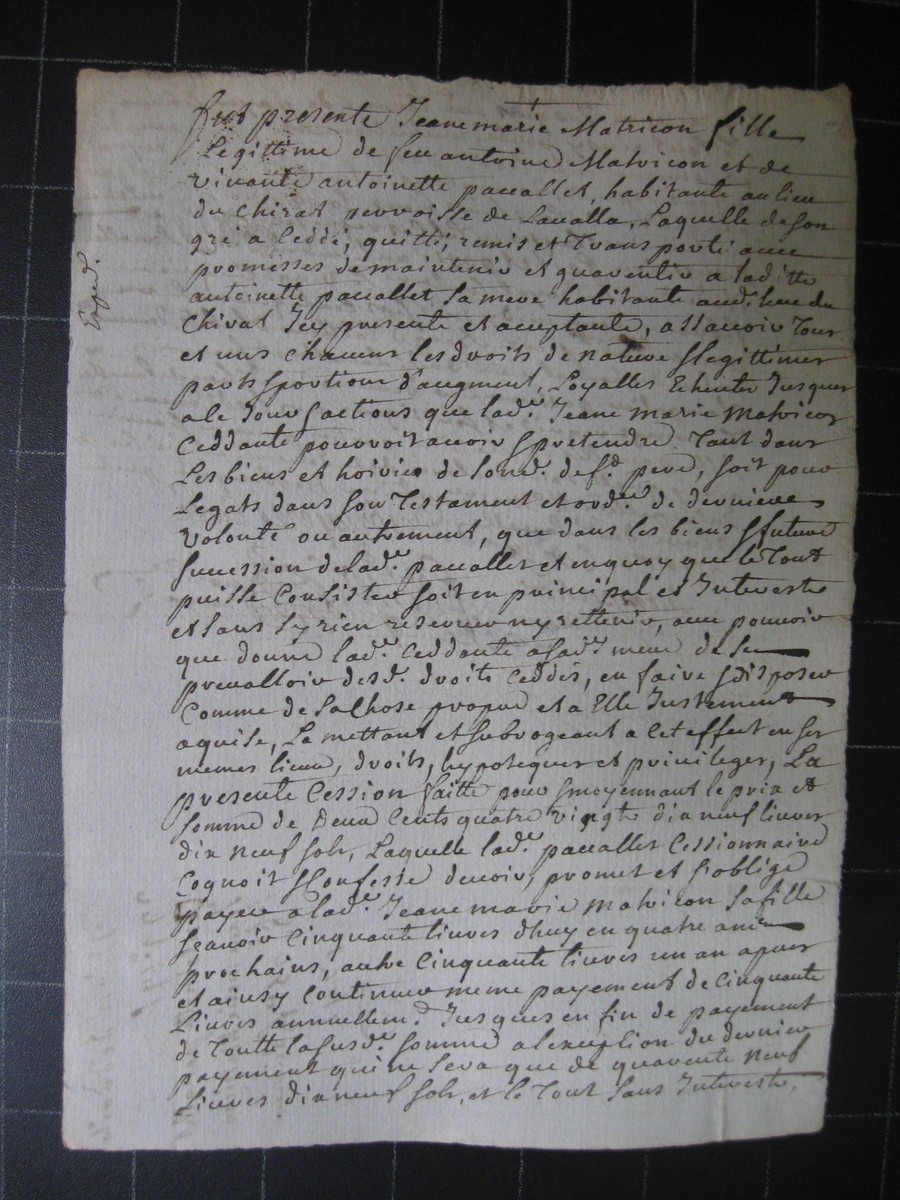 fust presente Jeanemarie Matricon fille
Legittime de feu antoine Matricon et de
vivante antoinette paccallet, habitante au lieu
du Chirat perroisse de Lavalla, Laquelle de son
gré a Ceddé, quitté, remis et transporté avec
promesses de maintenir et guarentir a laditte
antoinette paccallet sa mere habitante aud. lieu du
Chirat Icy presente et acceptante, assavoir tous
et uns chacuns les droits de nature & legittimes
parts & portions d'augment, Loyalles Echeutes Jusques
a ce Jour & actions que lad.e Jeane marie Matricon
Ceddante pourroit avoir & pretendre tant dans
Les biens et hoiries de sond. def.t pere, soit pour
Legats dans son testament et ord.re de derniere
volonté ou autrement, que dans les biens & future
succession de lad.e paccallet et en quoy que le tout
puisse Consister soit en principal et Interests
et sans sy rien reserver ny rettenir, avec pouvoir
que donne lad.e Ceddante a sad.e mere de se
prevalloir desd. droits Ceddés, en faire & disposer
Comme de sa Chose propre et a Elle Justement
aquise, La mettant et subrogeant a Cet effect en ses
memes lieux, droits, hypoteques et privileges, La
presente Cession faitte pour & moyennant le prix et
somme de Deux Cents quatre vingt dix neuf livres
dix neuf sols, Laquelle lad.e paccallet Cessionnaire
Cognoit & Confesse devoir, promet et s'oblige
payer a lad.e Jeane marie Matricon sa fille
sçavoir Cinquante livres d'huy en quatre années
prochains, autre Cinquante livres un an apres
et ainsy Continuer meme payement de Cinquante
Livres annuellem.t Jusques en fin de payement
de toutte la susd.e somme a l'exception du dernier
payement qui ne sera que de quarente neuf
Livres dix neuf sols, et le tout sans Interests.
Exped.